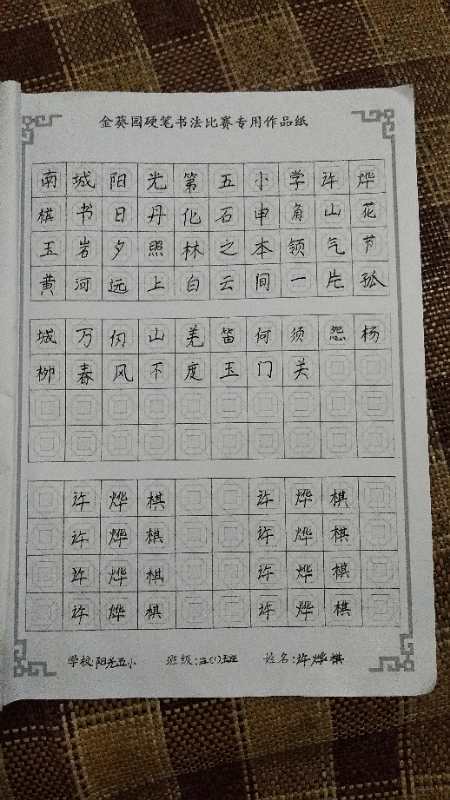 金葵园硬笔书法比赛专用作品纸
南城阳光第五小学许烨
棋书日丹化石申角山花
玉岩夕照林之本领气节
黄河远上白云间一片孤
城万仞山羌笛何须怨杨
柳春风不度玉门关
许烨棋 许烨棋
许烨棋 许烨棋
许烨棋 许烨棋
许烨棋 许烨棋
学校:阳光五小 班级: 姓名:许烨棋